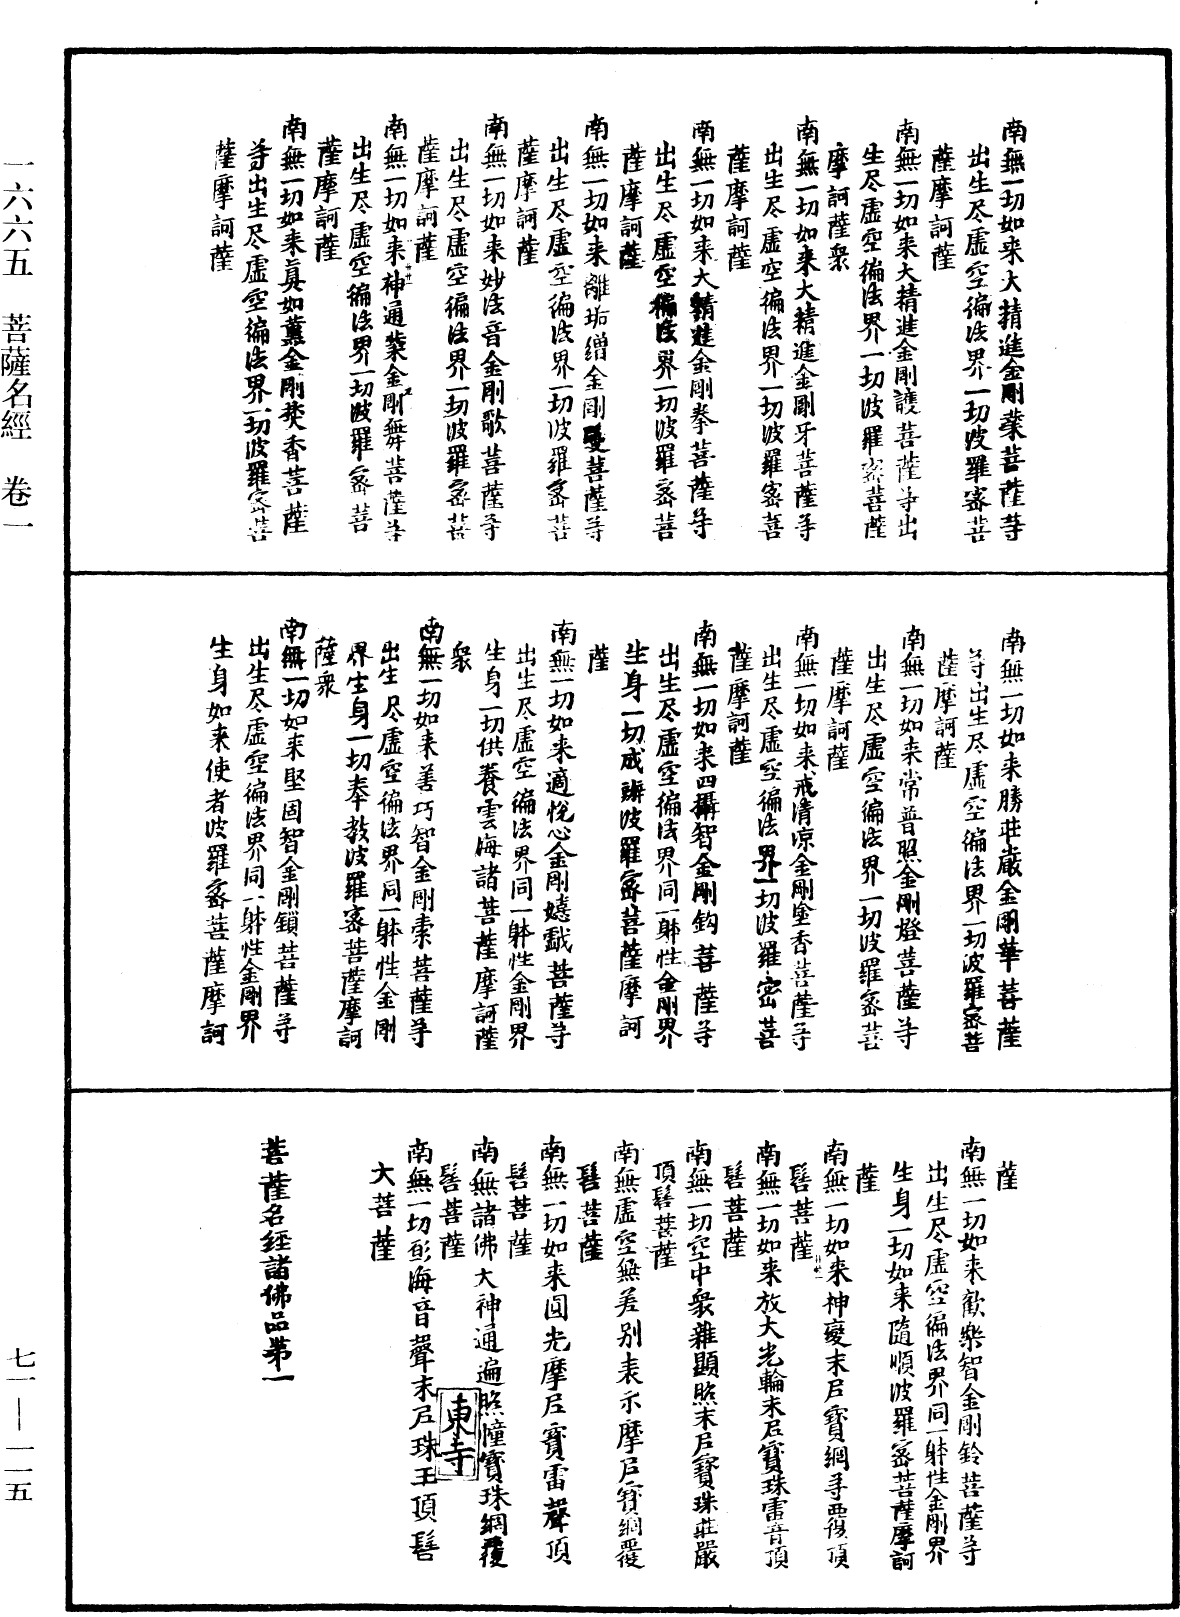 南無一切如来大精進金剛業菩薩等
出生尽虛空徧法界一切波羅蜜菩
薩摩訶薩
南無一切如来大精進金剛護菩薩等出
生尽虛空徧法界一切波羅蜜菩薩
摩訶薩衆
南無一切如来大精進金剛牙菩薩等
出生尽虛空徧法界一切波羅蜜菩
薩摩訶薩
南無一切如来大精進金剛拳菩薩等
出生尽虛空徧法界一切波羅蜜菩
薩摩訶薩
南無一切如来離垢繒金剛鬘菩薩等
出生尽虛空徧法界一切波羅蜜菩
薩摩訶薩
南無一切如来妙法音金剛歌菩薩等
出生尽虛空徧法界一切波羅蜜菩
薩摩訶薩
南無一切如来神通業金剛舞菩薩等
出生尽虛空徧法界一切波羅蜜菩
薩摩訶薩
南無一切如来真如薫金剛焚香菩薩
等出生尽虛空徧法界一切波羅蜜菩
薩摩訶薩
南無一切如来勝莊嚴金剛華菩薩
等出生尽虛空徧法界一切波羅蜜菩
薩摩訶薩
南無一切如来常普照金剛燈菩薩等
出生尽虛空徧法界一切波羅蜜菩
薩摩訶薩
南無一切如来戒清凉金剛塗香菩薩等
出生尽虛空徧法界一切波羅密菩
薩摩訶薩
南無一切如来四攝智金剛鈎菩薩等
出生尽虛空徧法界同一躰性金剛界
生身一切成辦波羅蜜菩薩摩訶
薩
南無一切如来適悅心金剛嬉戯菩薩等
出生尽虛空徧法界同一躰性金剛界
生身一切供養雲海諸菩薩摩訶薩
衆
南無一切如来善巧智金剛索菩薩等
出生尽虛空徧法界同一躰性金剛
界生身一切奉教波羅蜜菩薩摩訶
薩衆
南無一切如来堅固智金剛鎖菩薩等
出生尽虛空徧法界同一躰性金剛界
生身如来使者波羅蜜菩薩摩訶
薩
南無一切如来歡樂智金剛鈴菩薩等
出生尽虛空徧法界同一躰性金剛界
生身一切如来隨順波羅蜜菩薩摩訶
薩
南無一切如来神變末尼寳網等覆頂
髻菩薩
南無一切如来放大光輪末尼寳珠雷音頂
髻菩薩
南無一切空中衆雜顯照末尼寳珠莊嚴
頂髻菩薩
南無虛空無差别表示摩尼寳網覆
髻菩薩
南無一切如来圓光摩尼寳雷聲頂
髻菩薩
南無諸佛大神通遍照幢寳珠網覆
髻菩薩
南無一切影海音聲末尼珠王頂髻
大菩薩
東寺
菩薩名經諸佛品第一
一六六五　菩薩名經　卷一
七一—一一五